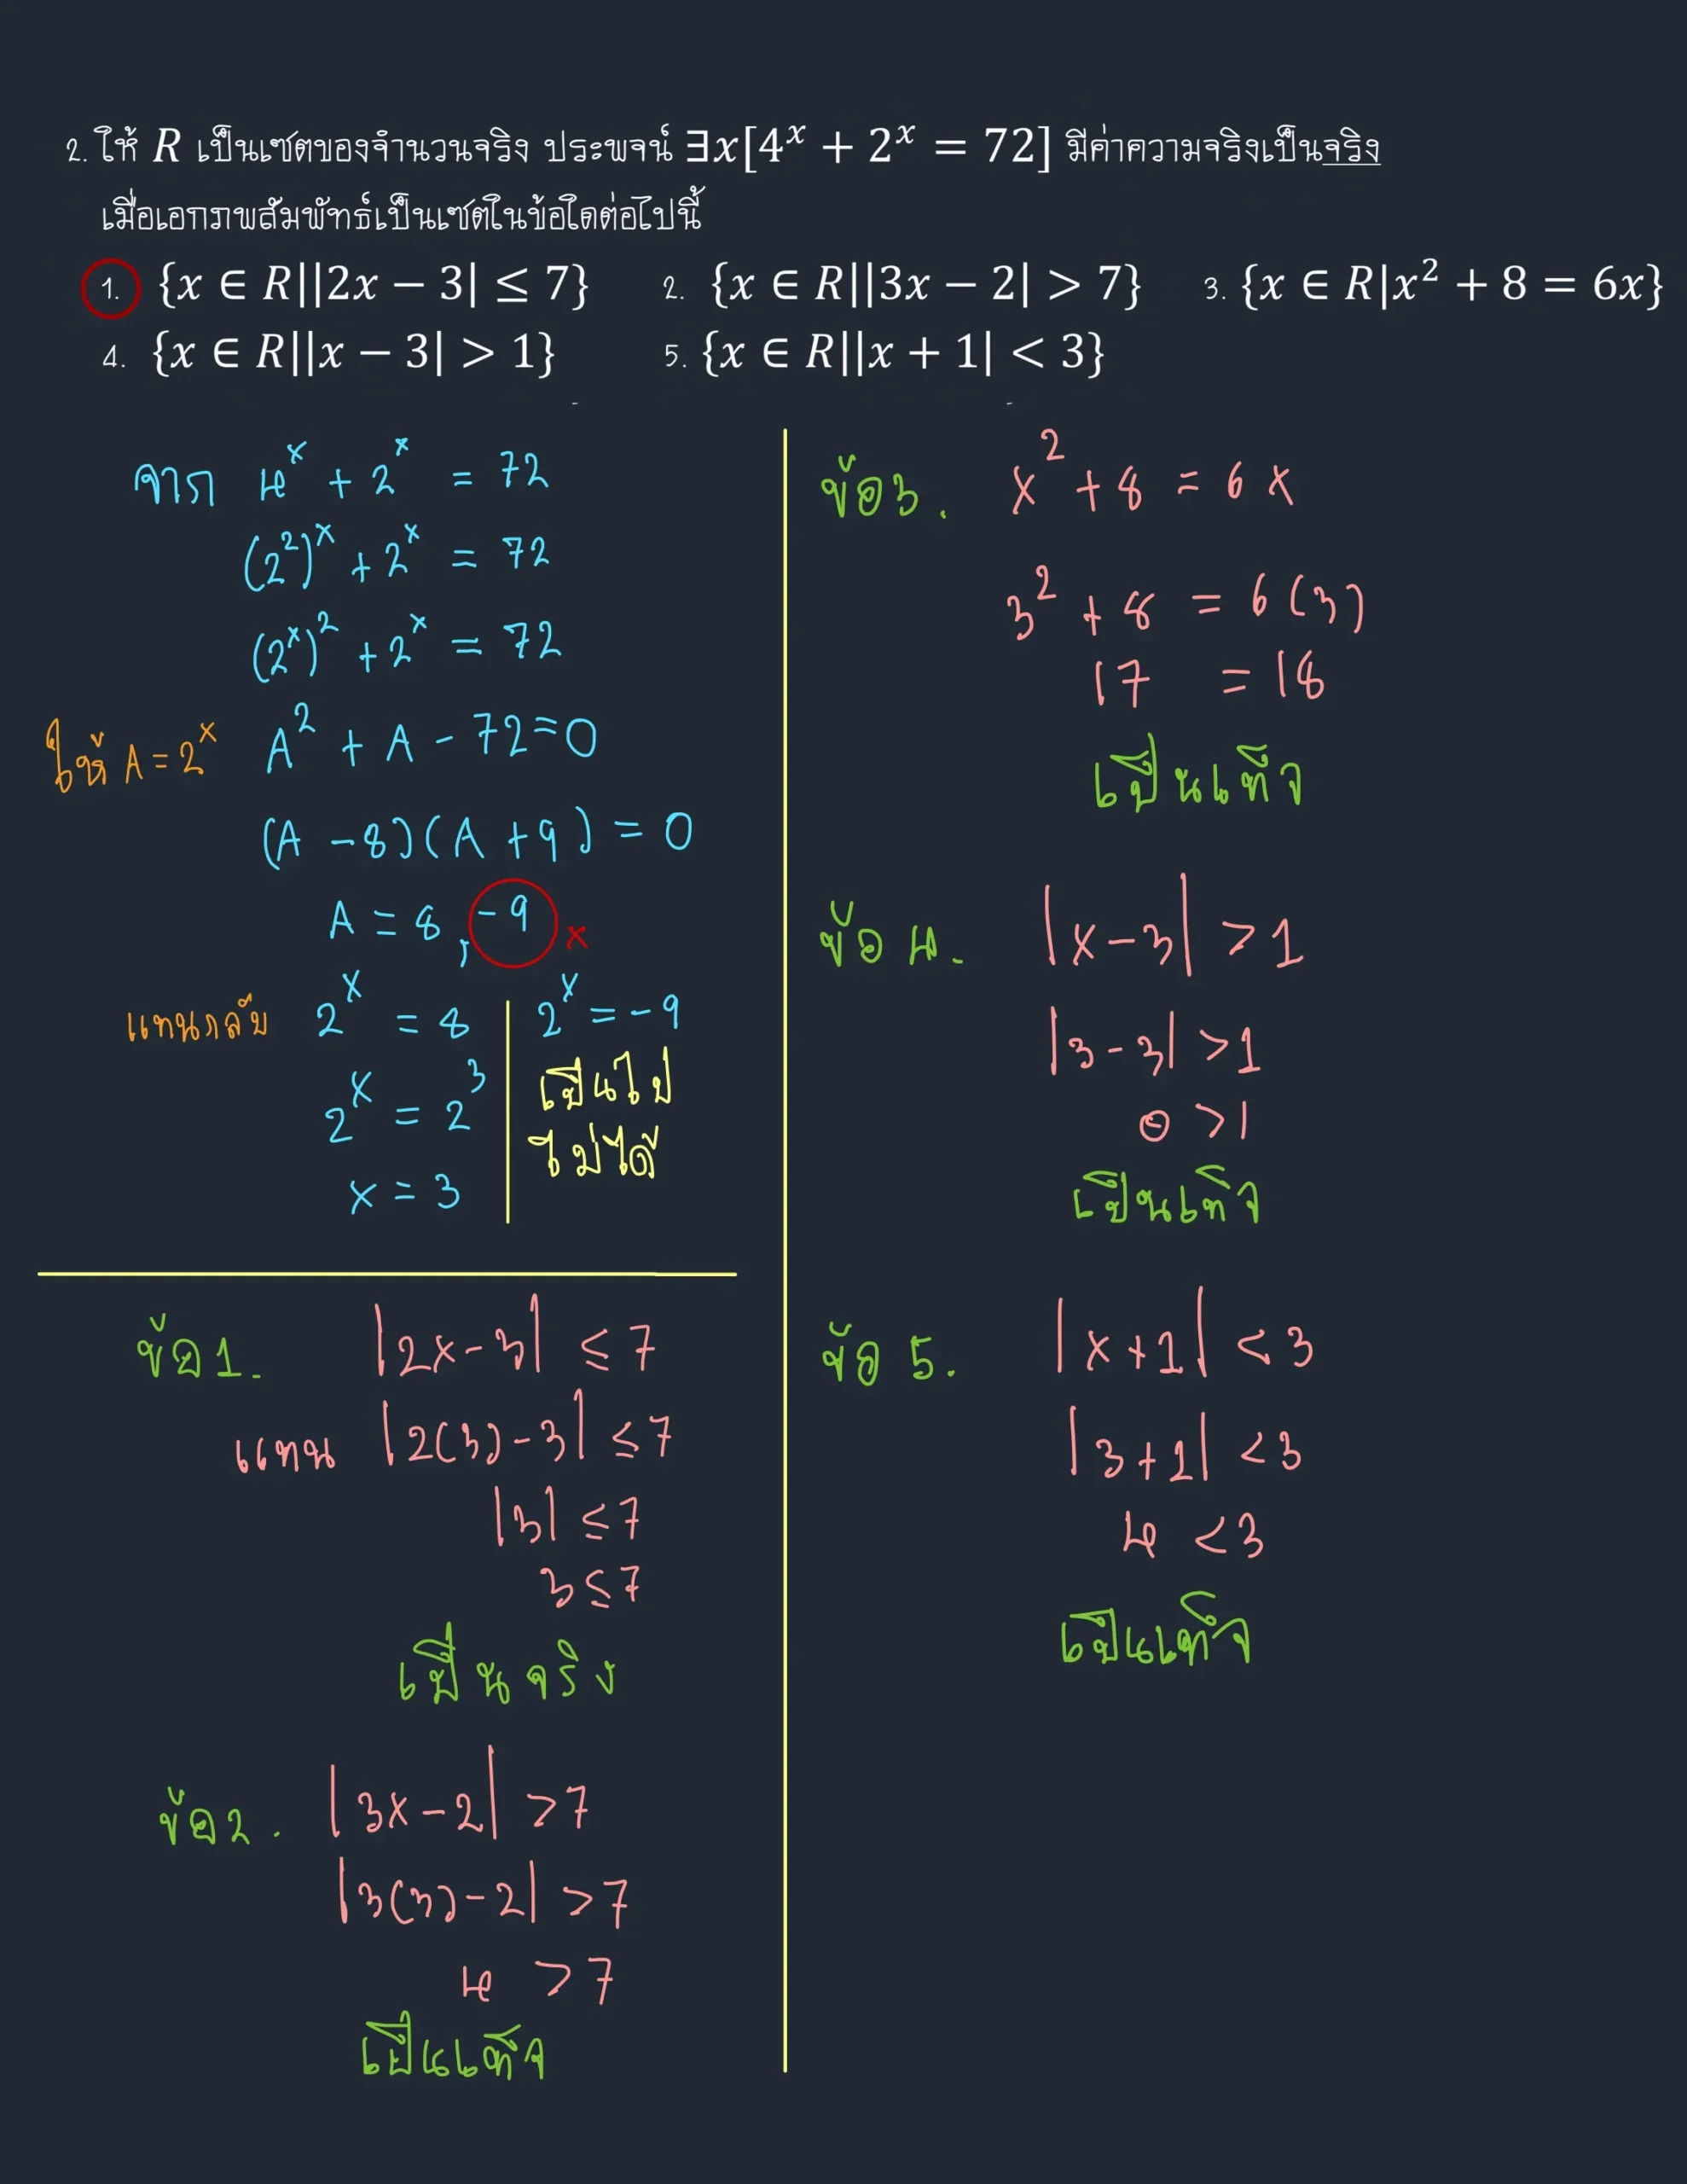 2. ให้ R เป็นเซตของจำนวนจริง ประพจน์ ∃x[4^x + 2^x = 72] มีค่าความจริงเป็นจริง
เมื่อเอกภพสัมพัทธ์เป็นเซตในข้อใดต่อไปนี้
1. {x ∈ R||2x − 3| ≤ 7} 2. {x ∈ R||3x − 2| > 7} 3. {x ∈ R|x² + 8 = 6x}
4. {x ∈ R||x − 3| > 1} 5. {x ∈ R||x + 1| < 3}
จาก 4^x + 2^x = 72
(2²)^x + 2^x = 72
(2^x)² + 2^x = 72
ให้ A = 2^x A² + A - 72 = 0
(A - 8)(A + 9) = 0
A = 8, -9 x
แทนกลับ 2^x = 8 2^x = -9
2^x = 2³ เป็นไป
ไม่ได้
x = 3
ข้อ 1. |2x - 3| ≤ 7
แทน |2(3) - 3| ≤ 7
|3| ≤ 7
3 ≤ 7
เป็นจริง
ข้อ 2. |3x - 2| > 7
|3(3) - 2| > 7
4 > 7
เป็นเท็จ
ข้อ 3. x² + 8 = 6x
3² + 8 = 6(3)
17 = 18
เป็นเท็จ
ข้อ 4. |x - 3| > 1
|3 - 3| > 1
0 > 1
เป็นเท็จ
ข้อ 5. |x + 1| < 3
|3 + 1| < 3
4 < 3
เป็นเท็จ